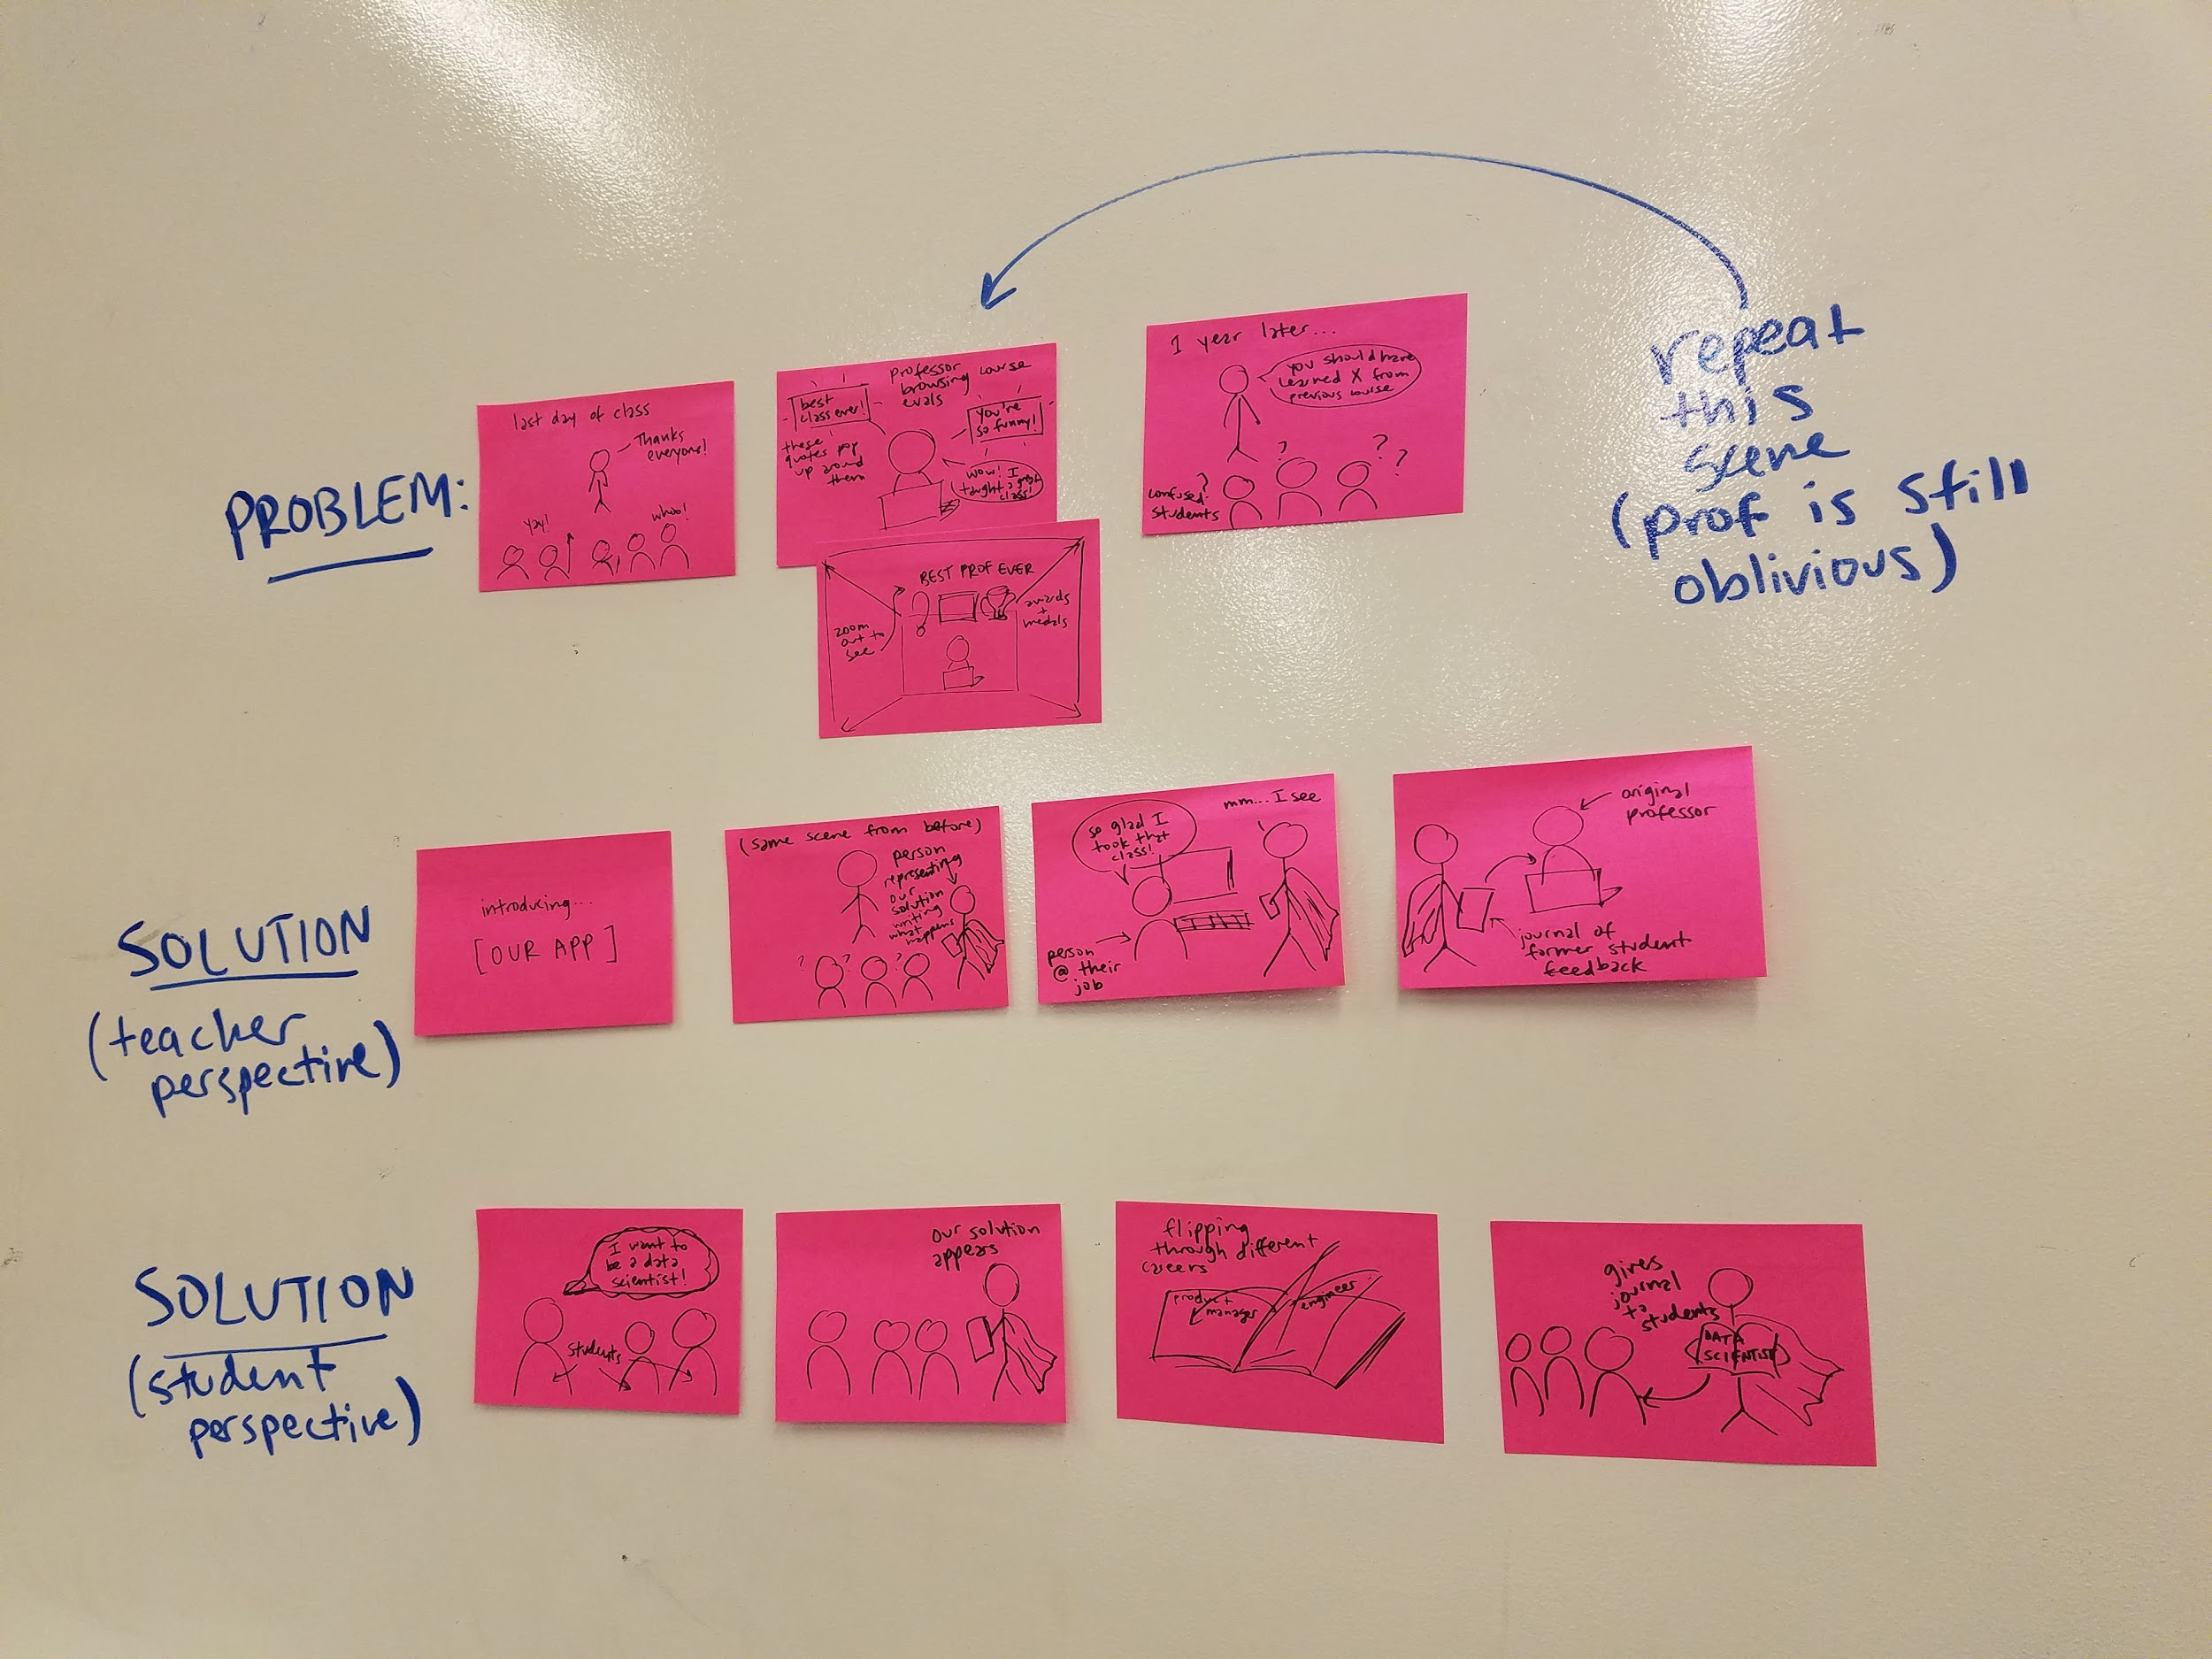 PROBLEM:
last day of class
Thanks
everyone!
yay!
whoo!
professor
browsing course
evals
best
class ever!
you're
so funny!
these
quotes pop
up around
them
wow! I
taught a great
class!
BEST PROF EVER
zoom
out to
see
awards
+
medals
1 year later...
you should have
learned X from
previous course
? ? ? ?
confused
students
repeat
this
scene
(prof is still
oblivious)
SOLUTION
(teacher
perspective)
introducing...
[OUR APP]
(same scene from before)
person
representing
our
solution
writing
what
happens
? ? ?
so glad I
took that
class!
mm... I see
person
@ their
job
original
professor
journal of
former student
feedback
SOLUTION
(student
perspective)
I want to
be a data
scientist!
students
our solution
appears
flipping
through different
careers
product
manager
engineer
gives
journal
to
students
DATA
SCIENTIST